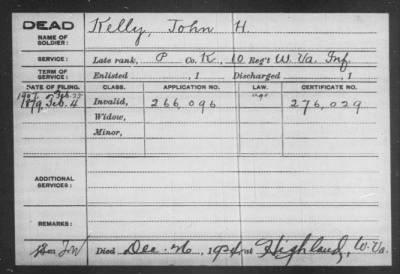 DEAD
NAME OF SOLDIER:
Kelly, John H.
SERVICE:
Late rank, P Co. K, 10 Reg't W. Va. Inf.
TERM OF SERVICE:
Enlisted , 1 Discharged , 1
DATE OF FILING. CLASS. APPLICATION NO. LAW. CERTIFICATE NO.
1907 Feb. 25 age
1879 Feb. 4 Invalid, 266,096 276,029
Widow,
Minor,
ADDITIONAL SERVICES:
REMARKS:
Died Dec. 26, 1924 at Highland, W. Va.